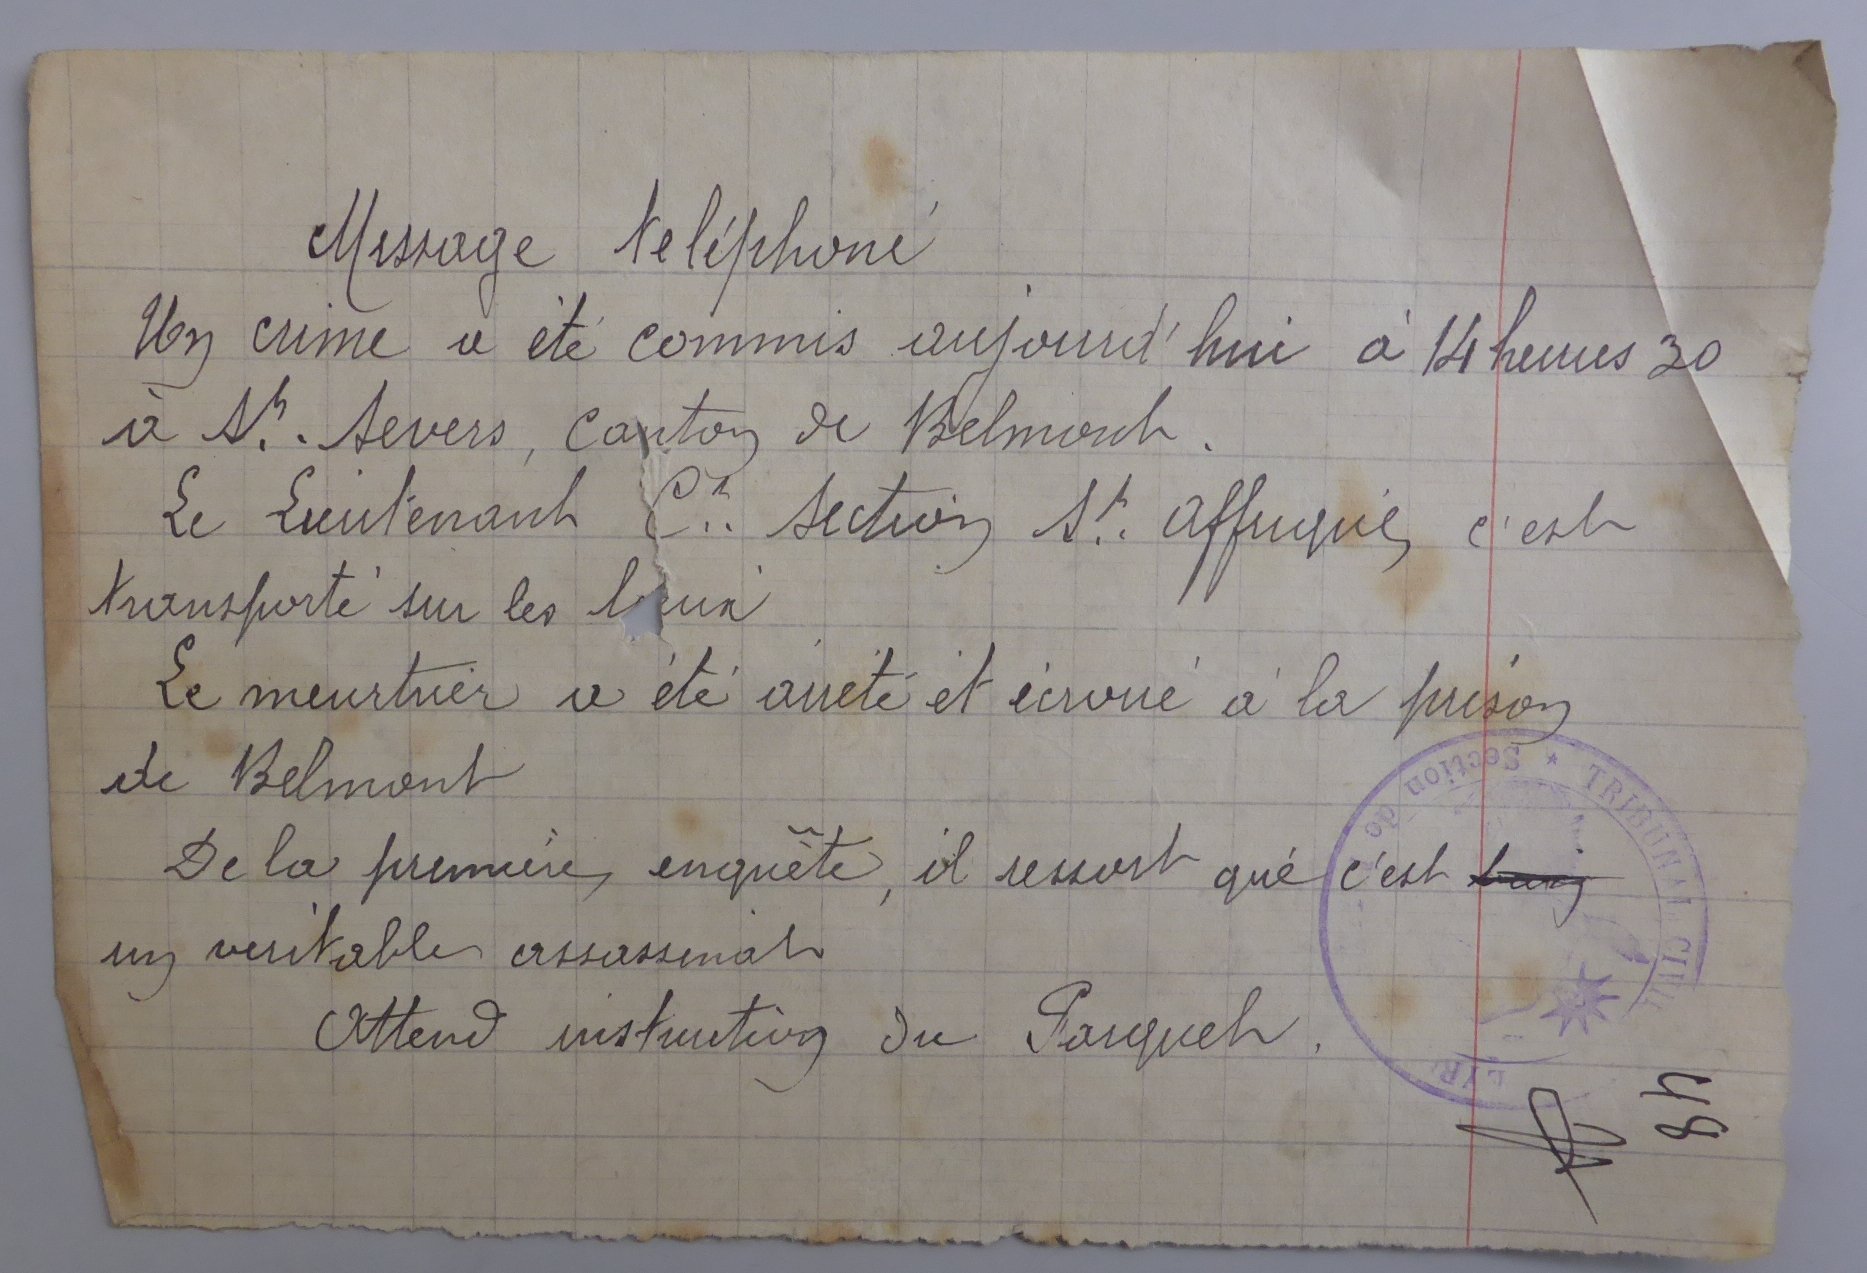 Message teléphoné
Un crime a été commis aujourd'hui à 14 heures 30
à St. Severs, canton de Belmont.
Le Lieutenant Ct. Section St. Affrique, c'est
transporté sur les lieux
Le meurtrier a été arrêté et écroué à la prison
de Belmont
De la première enquête, il ressort que c'est
un veritable assassinat
Attend instruction du Parquet.
TRIBUNAL CIVIL
Section de
48